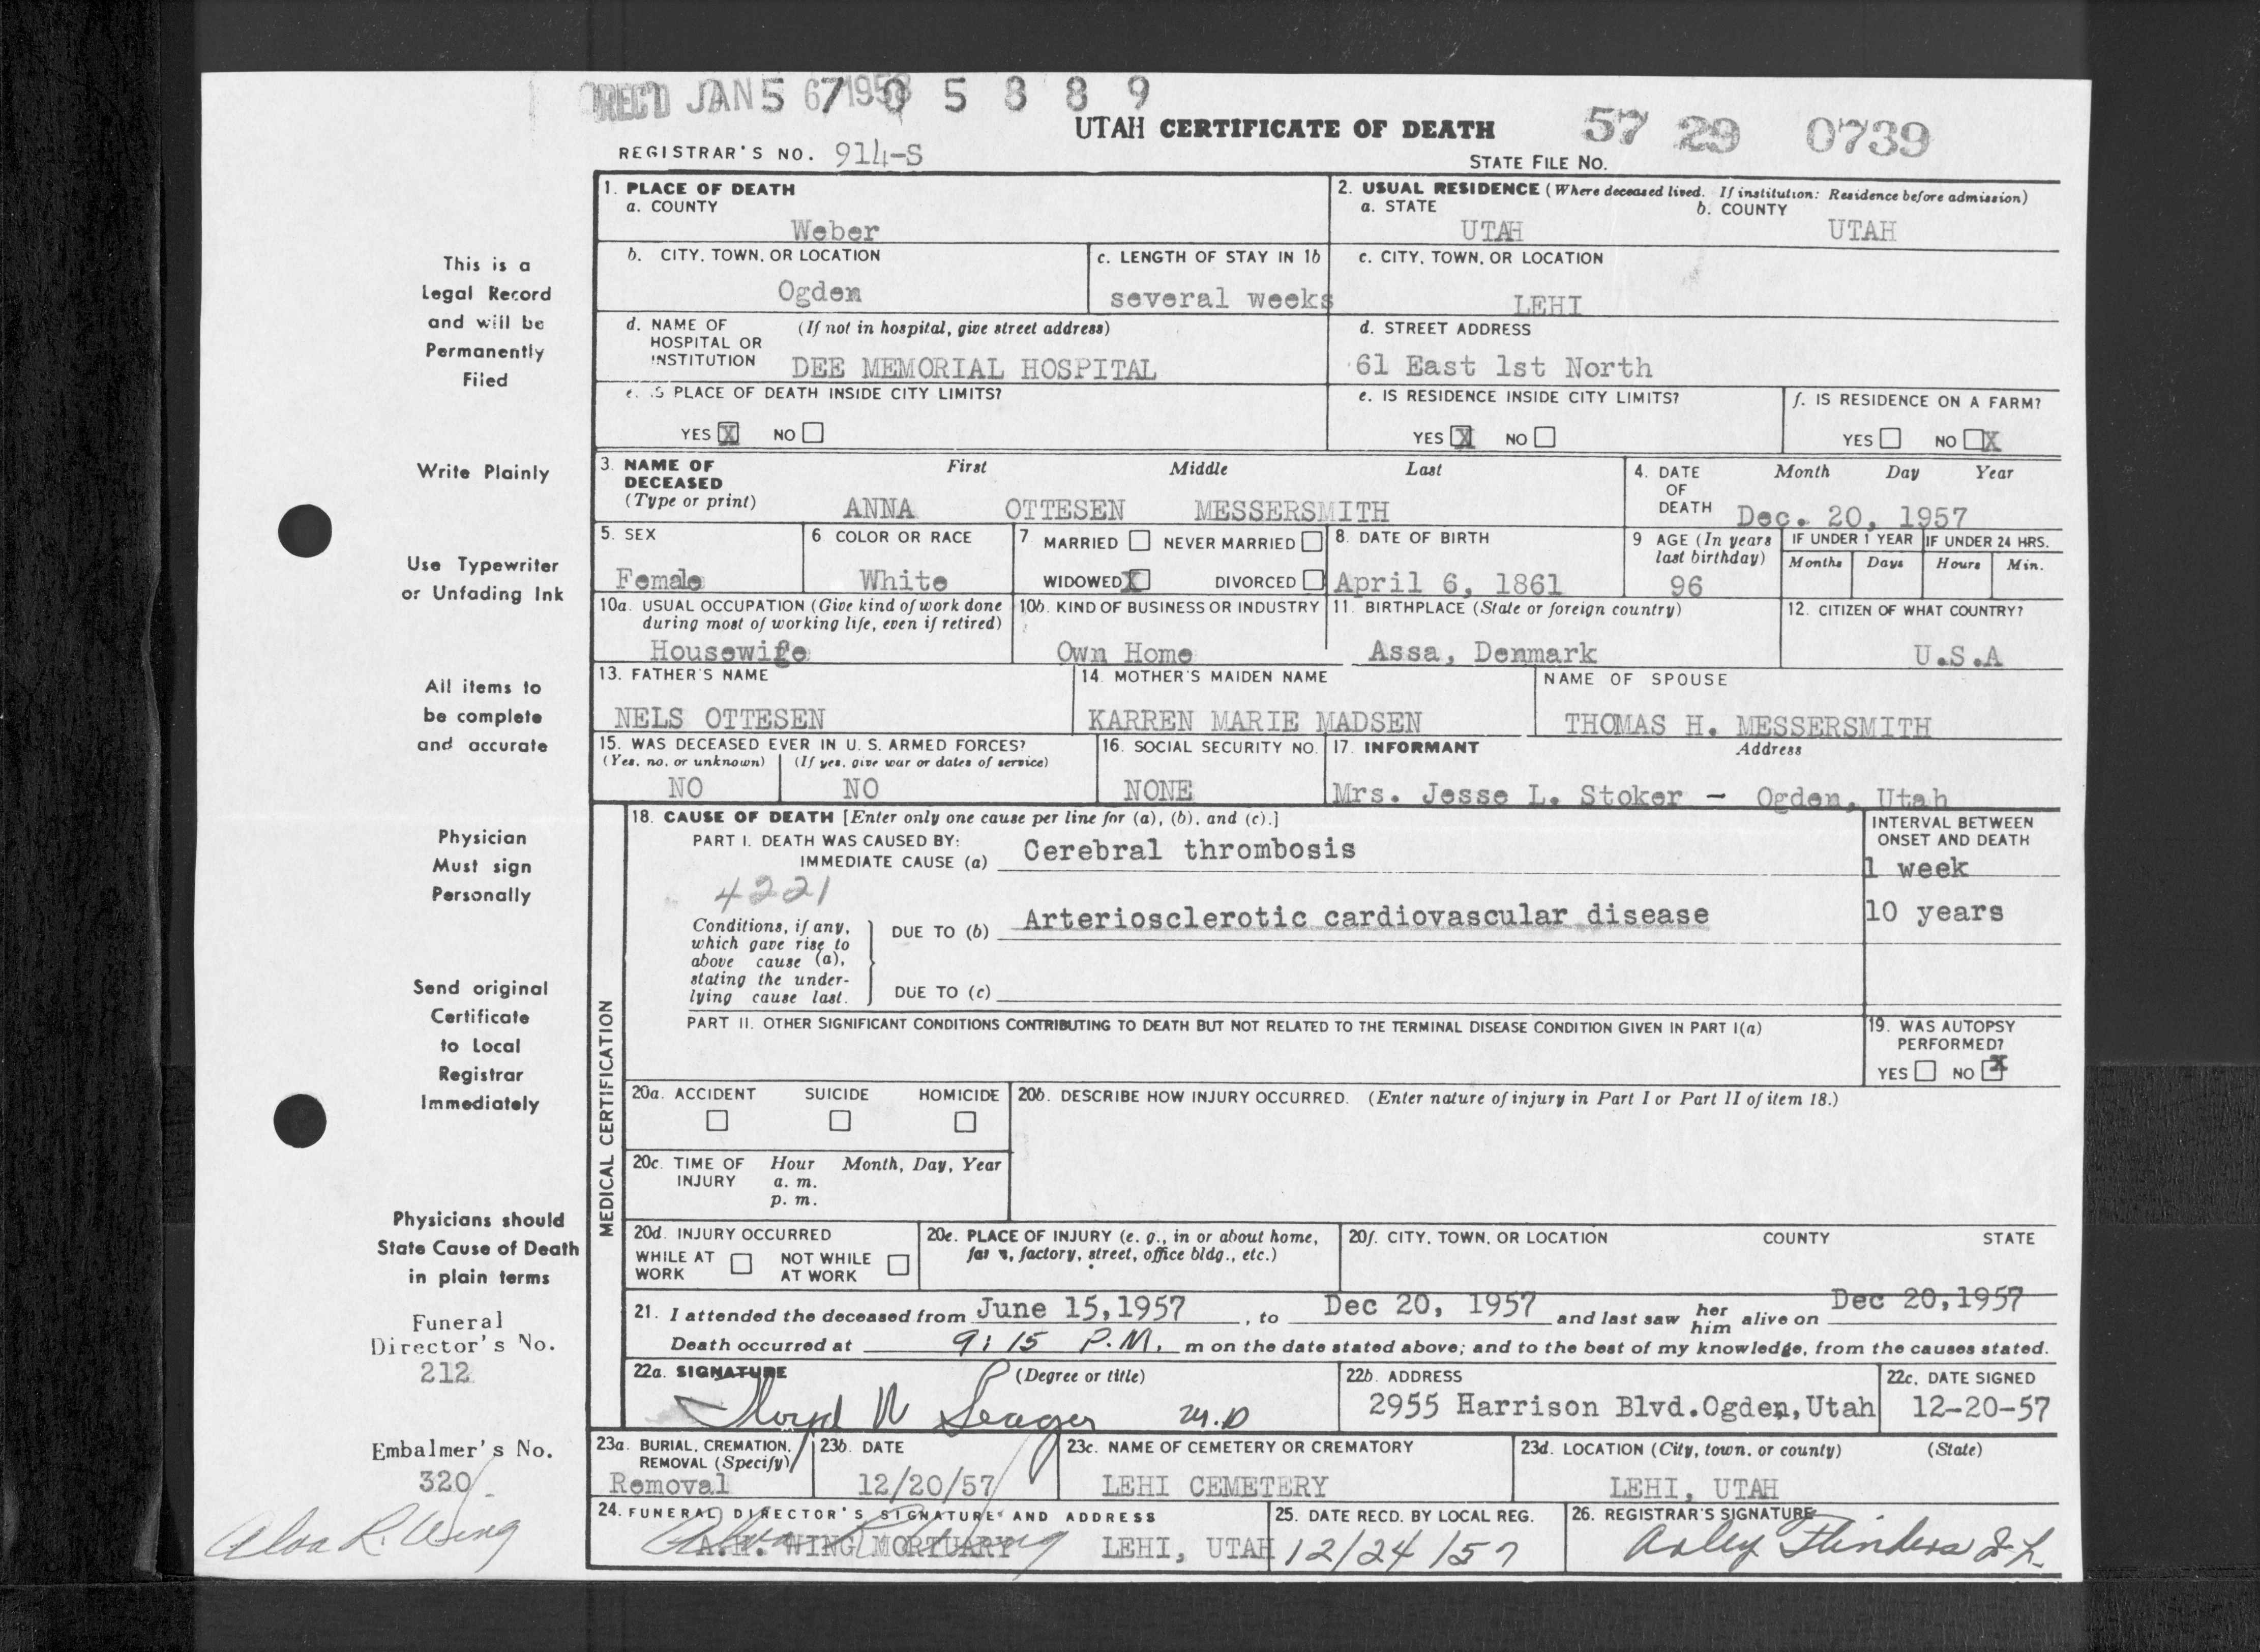 REC'D JAN 5 6 7 195 0 5 8 8 9
UTAH CERTIFICATE OF DEATH
57 29 0739
REGISTRAR'S NO. 914-S
STATE FILE NO.
1. PLACE OF DEATH
a. COUNTY
Weber
2. USUAL RESIDENCE (Where deceased lived. If institution: Residence before admission)
a. STATE
UTAH
b. COUNTY
UTAH
b. CITY, TOWN, OR LOCATION
Ogden
c. LENGTH OF STAY IN 1b
several weeks
c. CITY, TOWN, OR LOCATION
LEHI
d. NAME OF (If not in hospital, give street address)
HOSPITAL OR
INSTITUTION DEE MEMORIAL HOSPITAL
d. STREET ADDRESS
61 East 1st North
e. IS PLACE OF DEATH INSIDE CITY LIMITS?
YES X NO
e. IS RESIDENCE INSIDE CITY LIMITS?
YES X NO
f. IS RESIDENCE ON A FARM?
YES NO X
3. NAME OF First Middle Last
DECEASED
(Type or print) ANNA OTTESEN MESSERSMITH
4. DATE Month Day Year
OF
DEATH Dec. 20, 1957
5. SEX
Female
6 COLOR OR RACE
White
7 MARRIED NEVER MARRIED
WIDOWED X DIVORCED
8. DATE OF BIRTH
April 6, 1861
9 AGE (In years
last birthday)
96
IF UNDER 1 YEAR
Months Days
IF UNDER 24 HRS.
Hours Min.
10a. USUAL OCCUPATION (Give kind of work done
during most of working life, even if retired)
Housewife
10b. KIND OF BUSINESS OR INDUSTRY
Own Home
11. BIRTHPLACE (State or foreign country)
Assa, Denmark
12. CITIZEN OF WHAT COUNTRY?
U.S.A
13. FATHER'S NAME
NELS OTTESEN
14. MOTHER'S MAIDEN NAME
KARREN MARIE MADSEN
NAME OF SPOUSE
THOMAS H. MESSERSMITH
15. WAS DECEASED EVER IN U. S. ARMED FORCES?
(Yes, no, or unknown) (If yes, give war or dates of service)
NO NO
16. SOCIAL SECURITY NO.
NONE
17. INFORMANT Address
Mrs. Jesse L. Stoker - Ogden, Utah
MEDICAL CERTIFICATION
18. CAUSE OF DEATH [Enter only one cause per line for (a), (b), and (c).]
PART I. DEATH WAS CAUSED BY:
IMMEDIATE CAUSE (a) Cerebral thrombosis
INTERVAL BETWEEN
ONSET AND DEATH
1 week
4221
Conditions, if any,
which gave rise to
above cause (a),
stating the under-
lying cause last.
DUE TO (b) Arteriosclerotic cardiovascular disease
10 years
DUE TO (c)
PART II. OTHER SIGNIFICANT CONDITIONS CONTRIBUTING TO DEATH BUT NOT RELATED TO THE TERMINAL DISEASE CONDITION GIVEN IN PART I(a)
19. WAS AUTOPSY
PERFORMED?
YES NO X
20a. ACCIDENT SUICIDE HOMICIDE
20b. DESCRIBE HOW INJURY OCCURRED. (Enter nature of injury in Part I or Part II of item 18.)
20c. TIME OF Hour Month, Day, Year
INJURY a. m.
p. m.
20d. INJURY OCCURRED
WHILE AT NOT WHILE
WORK AT WORK
20e. PLACE OF INJURY (e. g., in or about home,
farm, factory, street, office bldg., etc.)
20f. CITY, TOWN, OR LOCATION COUNTY STATE
21. I attended the deceased from June 15,1957, to Dec 20, 1957 and last saw her him alive on Dec 20,1957
Death occurred at 9:15 P.M. m on the date stated above; and to the best of my knowledge, from the causes stated.
22a. SIGNATURE (Degree or title)
Floyd W Seager M.D
22b. ADDRESS
2955 Harrison Blvd.Ogden,Utah
22c. DATE SIGNED
12-20-57
23a. BURIAL, CREMATION,
REMOVAL (Specify)
Removal
23b. DATE
12/20/57
23c. NAME OF CEMETERY OR CREMATORY
LEHI CEMETERY
23d. LOCATION (City, town, or county) (State)
LEHI, UTAH
24. FUNERAL DIRECTOR'S SIGNATURE AND ADDRESS
A.H. WING MORTUARY LEHI, UTAH
25. DATE RECD. BY LOCAL REG.
12/24/57
26. REGISTRAR'S SIGNATURE
Arley Flinders
This is a
Legal Record
and will be
Permanently
Filed
Write Plainly
Use Typewriter
or Unfading Ink
All items to
be complete
and accurate
Physician
Must sign
Personally
Send original
Certificate
to Local
Registrar
Immediately
Physicians should
State Cause of Death
in plain terms
Funeral
Director's No.
212
Embalmer's No.
320
Alva R. Wing